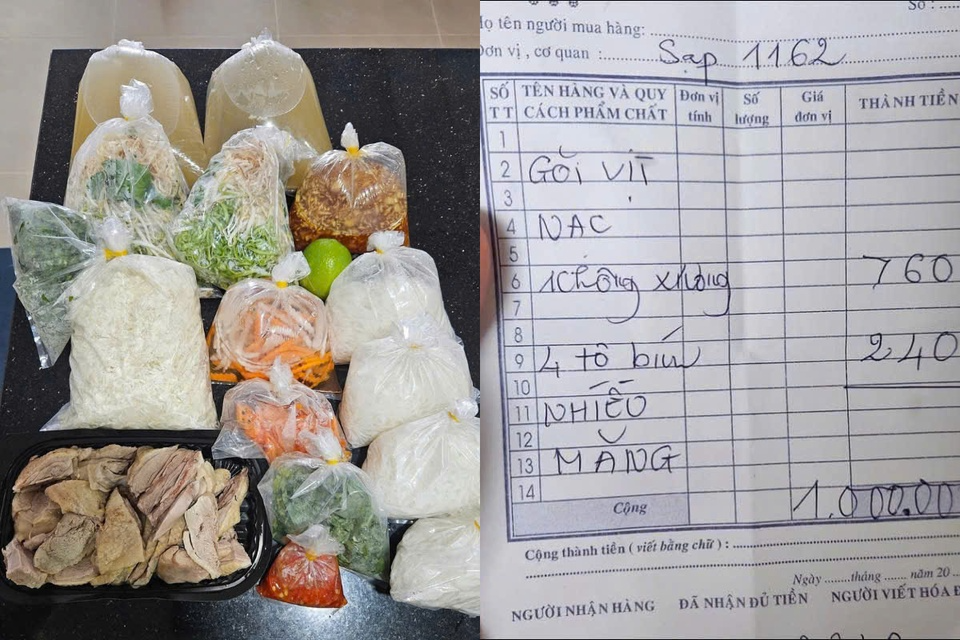 Số : .....
Họ tên người mua hàng: ........
Đơn vị , cơ quan : Sạp 1162
SỐ TT TÊN HÀNG VÀ QUY CÁCH PHẨM CHẤT Đơn vị tính Số lượng Giá đơn vị THÀNH TIỀN
1
2 GỎI VỊT
3
4 NẠC
5
6 không xương 760
7
8
9 4 tô bún 240
10
11 NHIỀU
12
13 MĂNG
14
Cộng 1.000.00
Cộng thành tiền ( viết bằng chữ ) : ........
Ngày ........tháng ........ năm 20 ...
NGƯỜI NHẬN HÀNG ĐÃ NHẬN ĐỦ TIỀN NGƯỜI VIẾT HÓA Đ